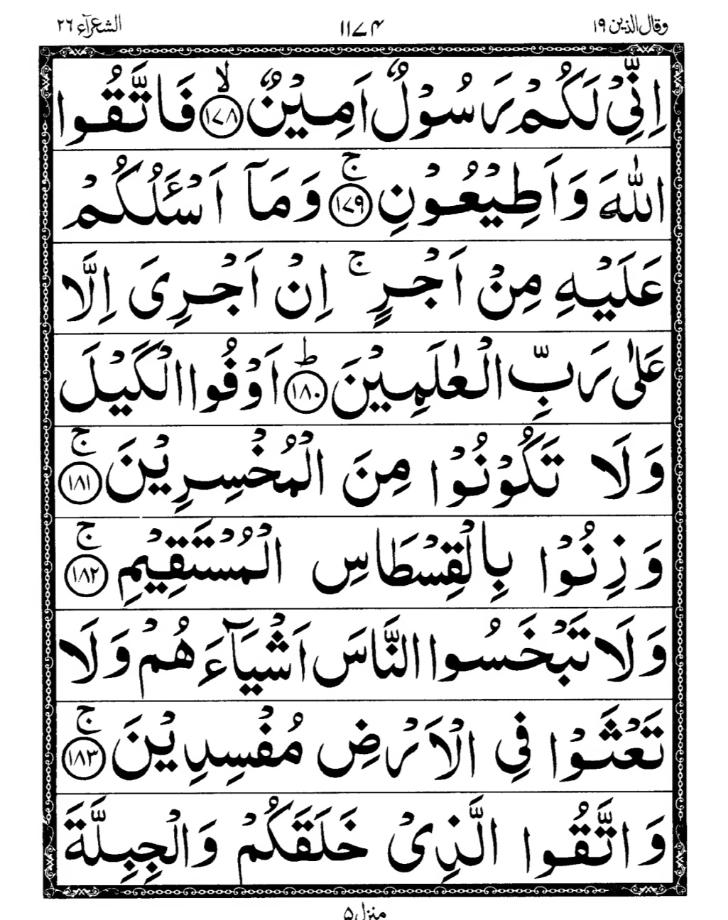 وقال الذین ١٩ ١١٧٤ الشعرآء ٢٦
اِنِّیْ لَكُمْ رَسُوْلٌ اَمِیْنٌ ۙ﴿١٧٨﴾ فَاتَّقُوا
اللّٰهَ وَاَطِیْعُوْنِ ۚ﴿١٧٩﴾ وَمَاۤ اَسْـَٔلُكُمْ
عَلَیْهِ مِنْ اَجْرٍ ۚ اِنْ اَجْرِیَ اِلَّا
عَلٰی رَبِّ الْعٰلَمِیْنَ ؕ﴿١٨٠﴾ اَوْفُوا الْكَیْلَ
وَلَا تَكُوْنُوْا مِنَ الْمُخْسِرِیْنَ ۚ﴿١٨١﴾
وَزِنُوْا بِالْقِسْطَاسِ الْمُسْتَقِیْمِ ۚ﴿١٨٢﴾
وَلَا تَبْخَسُوا النَّاسَ اَشْیَآءَهُمْ وَلَا
تَعْثَوْا فِی الْاَرْضِ مُفْسِدِیْنَ ۚ﴿١٨٣﴾
وَاتَّقُوا الَّذِیْ خَلَقَكُمْ وَالْجِبِلَّةَ
منزل ۵